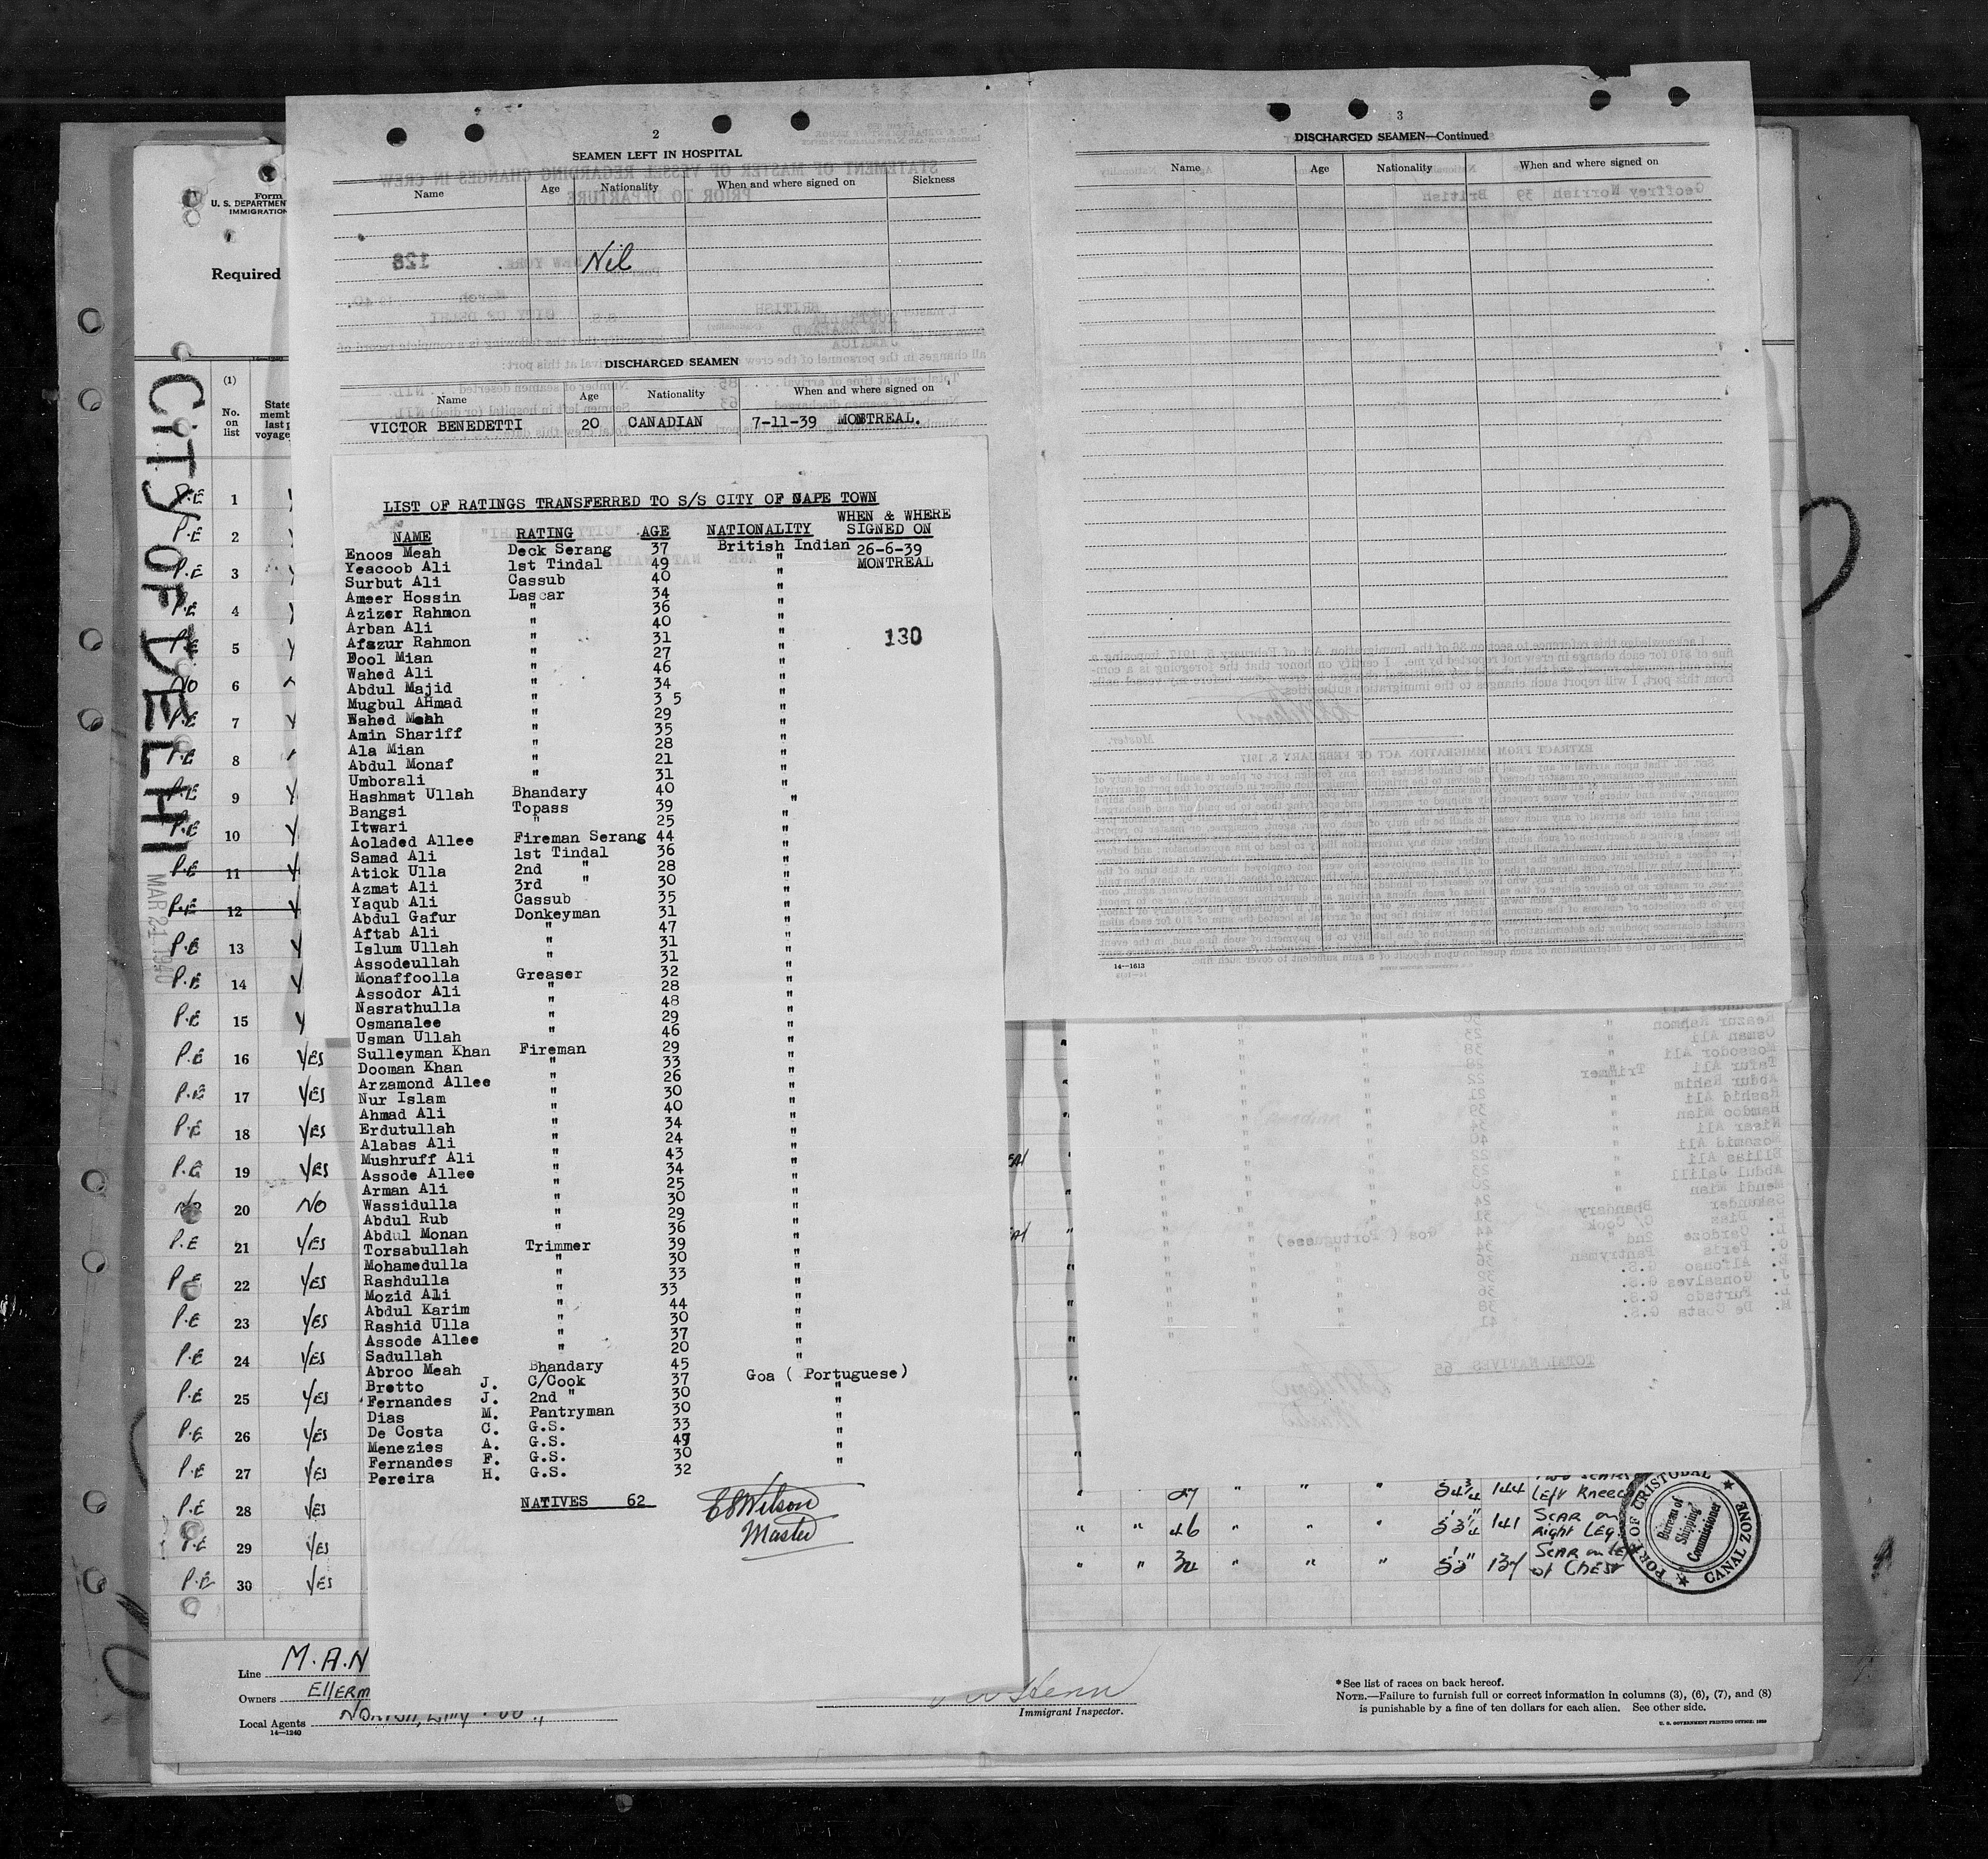 2
SEAMEN LEFT IN HOSPITAL
Name Age Nationality When and where signed on Sickness
Nil
DISCHARGED SEAMEN
Name Age Nationality When and where signed on
VICTOR BENEDETTI 20 CANADIAN 7-11-39 MONTREAL.
LIST OF RATINGS TRANSFERRED TO S/S CITY OF CAPE TOWN
NAME RATING AGE NATIONALITY WHEN & WHERE SIGNED ON
Enoos Meah Deck Serang 37 British Indian 26-6-39
Yeacoob Ali 1st Tindal 49 " MONTREAL
Surbut Ali Cassub 40 "
Ameer Hossin Lascar 34 "
Azizer Rahmon " 36 "
Arban Ali " 40 "
Afazur Rahmon " 31 " 130
Fool Mian " 27 "
Wahed Ali " 46 "
Abdul Majid " 34 "
Mugbul AHmad " 3 5 "
Wahed Meah " 29 "
Amin Shariff " 35 "
Ala Mian " 28 "
Abdul Monaf " 21 "
Umborali " 31 "
Hashmat Ullah Bhandary 40 "
Bangsi Topass 39 "
Itwari " 25 "
Aoladed Allee Fireman Serang 44 "
Samad Ali 1st Tindal 36 "
Atick Ulla 2nd " 28 "
Azmat Ali 3rd " 30 "
Yaqub Ali Cassub 35 "
Abdul Gafur Donkeyman 31 "
Aftab Ali " 47 "
Islum Ullah " 31 "
Assodeullah " 31 "
Monaffoolla Greaser 32 "
Assodor Ali " 28 "
Nasrathulla " 48 "
Osmanalee " 29 "
Usman Ullah " 46 "
Sulleyman Khan Fireman 29 "
Dooman Khan " 33 "
Arzamond Allee " 26 "
Nur Islam " 30 "
Ahmad Ali " 40 "
Erdutullah " 34 "
Alabas Ali " 24 "
Mushruff Ali " 43 "
Assode Allee " 34 "
Arman Ali " 25 "
Wassidulla " 30 "
Abdul Rub " 29 "
Abdul Monan " 36 "
Torsabullah Trimmer 39 "
Mohamedulla " 30 "
Rashdulla " 33 "
Mozid Ali " 33 "
Abdul Karim " 44 "
Rashid Ulla " 30 "
Assode Allee " 37 "
Sadullah " 20 "
Abroo Meah Bhandary 45 "
Bretto J. C/Cook 37 Goa ( Portuguese)
Fernandes J. 2nd " 30 "
Dias M. Pantryman 30 "
De Costa C. G.S. 33 "
Menezies A. G.S. "
Fernandes F. G.S. 30 "
Pereira H. G.S. 32 "
NATIVES 62
E S Wilson
Master
3
DISCHARGED SEAMEN—Continued
Name Age Nationality When and where signed on
14—1613
CITY OF DELHI
MAR 21 1940
Form
U. S. DEPARTMENT
IMMIGRATION
Required
(1)
No. on list
State
memb
last p
voyage
P.E 1
P.E 2
P.E 3
P.E 4
P.E 5
No 6
P.E 7
P.E 8
P.E 9
P.E 10
P.E 11
P.E 12
P.E 13
P.E 14
P.E 15
P.E 16 YES
P.E 17 YES
P.E 18 YES
P.E 19 YES
No 20 NO
P.E 21 YES
P.E 22 YES
P.E 23 YES
P.E 24 YES
P.E 25 YES
P.E 26 YES
P.E 27 YES
P.E 28 YES
P.E 29 YES
P.E 30 YES
144 Left Kneec
" " 46 " " " 141 Scar on Right Leg.
" " " " " 137 Scar on left of Chest
PORT OF CRISTOBAL
CANAL ZONE
Bureau of Shipping Commissioner
Line M.A.N
Owners Ellerm
Local Agents Norton, Lilly
14—1240
Immigrant Inspector.
* See list of races on back hereof.
NOTE.—Failure to furnish full or correct information in columns (3), (6), (7), and (8)
is punishable by a fine of ten dollars for each alien. See other side.